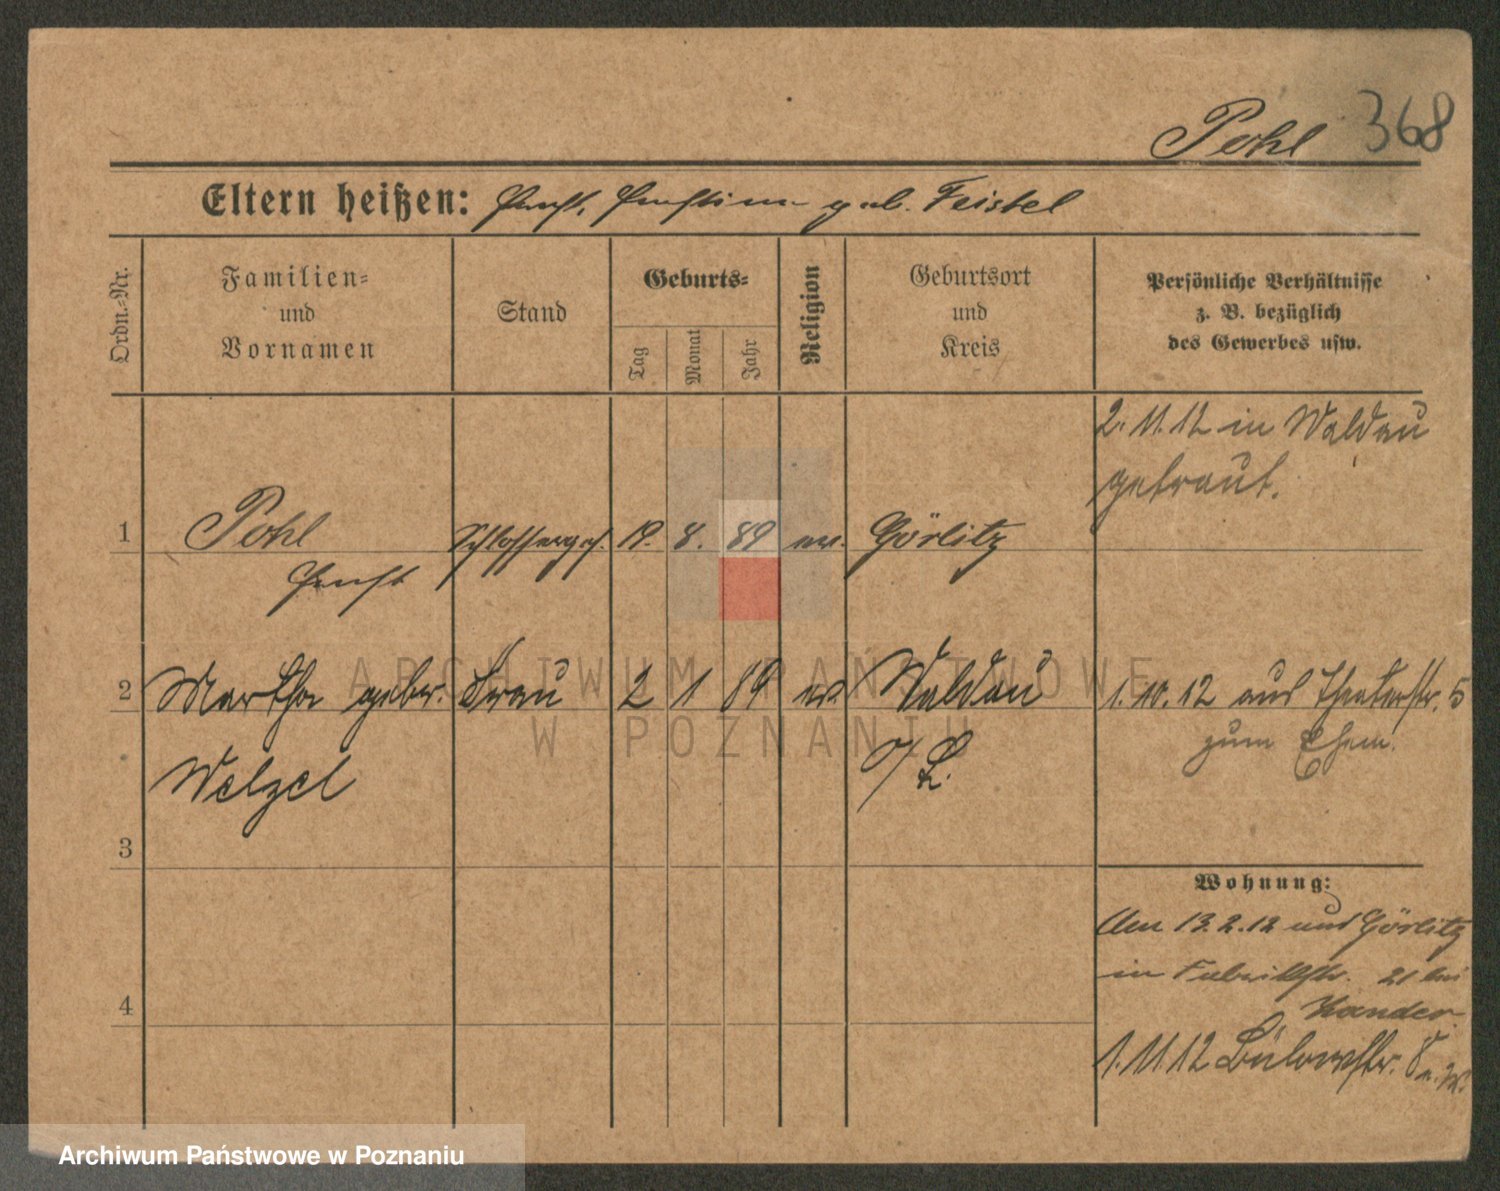 Pohl 368
Eltern heißen: Ernst, Ernstine geb. Feistel
Ordn.-Nr.
Familien-
und
Vornamen
Stand
Geburts-
Tag
Monat
Jahr
Religion
Geburtsort
und
Kreis
Persönliche Verhältnisse
z. B. bezüglich
des Gewerbes usw.
2. 11. 12 in Waldau
getraut.
1 Pohl Schlosserges. 19. 8. 89 ev. Görlitz
Ernst
2 Martha gebor. Frau 2 1 89 ev. Waldau 1. 10. 12 aus Theaterstr. 5
zum Ehem.
Welzel O/L.
3
Wohnung:
Am 13. 2. 12 aus Görlitz
in 21 bei
4
1. 11. 12 Bülowstr. 8
ARCHIWUM PAŃSTWOWE
W POZNANIU
Archiwum Państwowe w Poznaniu